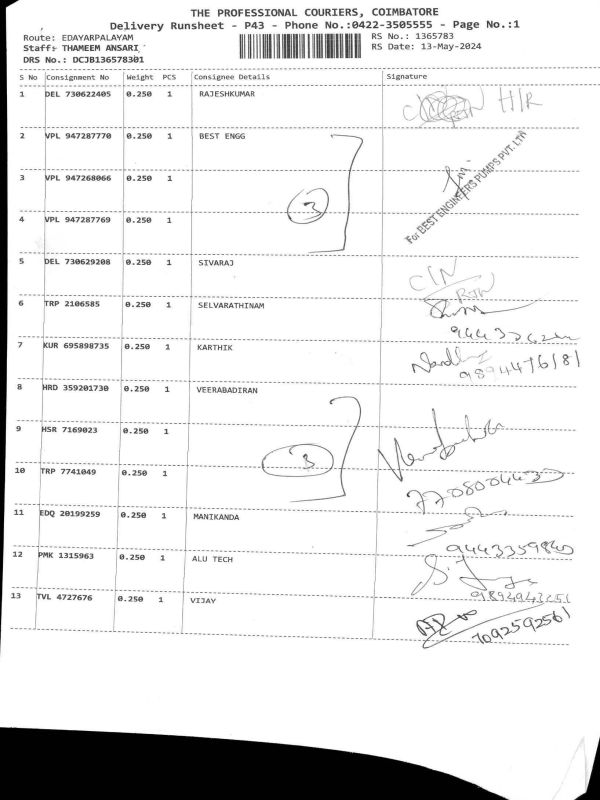 THE PROFESSIONAL COURIERS, COIMBATORE
Delivery Runsheet - P43 - Phone No.:0422-3505555 - Page No.:1
Route: EDAYARPALAYAM RS No.: 1365783
Staff: THAMEEM ANSARI RS Date: 13-May-2024
DRS No.: DCJB136578301
S No Consignment No Weight PCS Consignee Details Signature
1 DEL 730622405 0.250 1 RAJESHKUMAR
H/R
2 VPL 947287770 0.250 1 BEST ENGG
3 VPL 947268066 0.250 1
3
For BEST ENGINEERS PUMPS PVT. LTA
4 VPL 947287769 0.250 1
5 DEL 730629208 0.250 1 SIVARAJ
C/N
6 TRP 2106585 0.250 1 SELVARATHINAM
7 KUR 695898735 0.250 1 KARTHIK
8 HRD 359201730 0.250 1 VEERABADIRAN
9 HSR 7169023 0.250 1
3
10 TRP 7741049 0.250 1
11 EDQ 20199259 0.250 1 MANIKANDA
9443359840
12 PMK 1315963 0.250 1 ALU TECH
13 TVL 4727676 0.250 1 VIJAY
7092592561